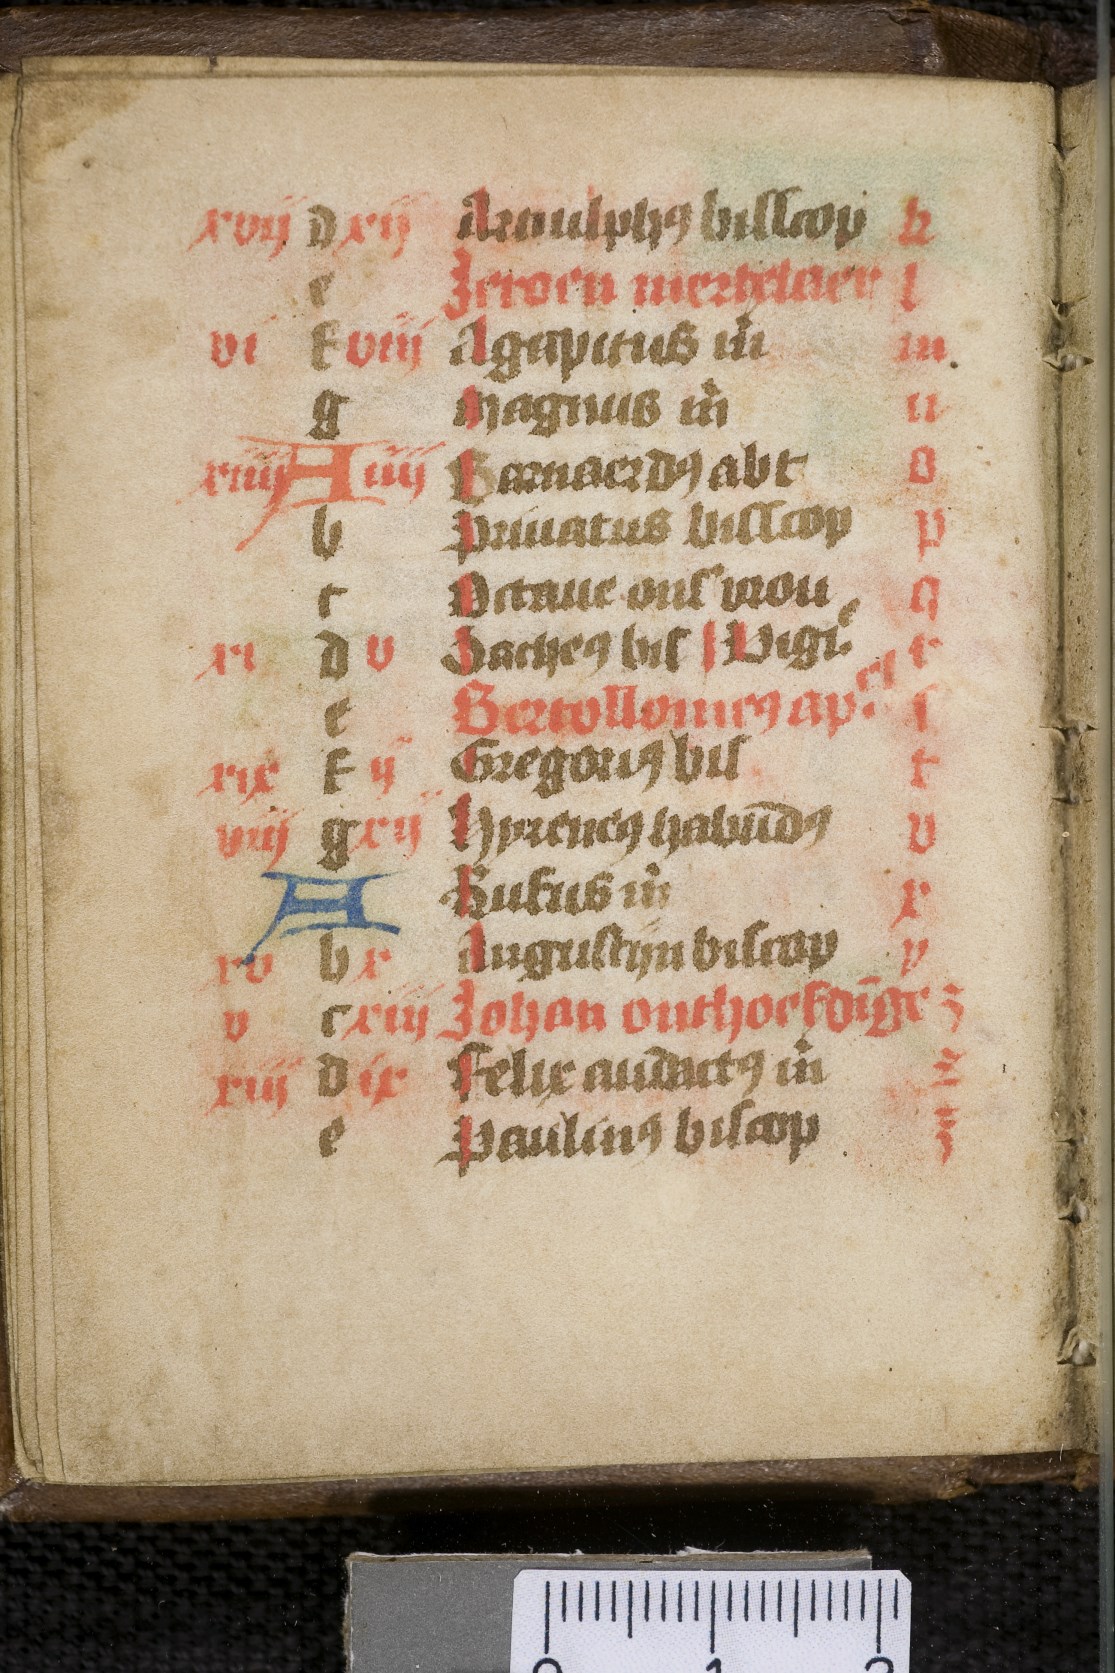 xvij d xij Arnulphꝯ bisscop k
e Jeroen mertelaer l
vi f viij Agapitus m̄ m
g Magnus m̄ n
xiiij A iiij Barnaerdꝯ abt o
b Priuatus bisscop p
c Octaue onſ vrou q
d v Zacheꝯ biſ Vigi r
xi
e Bertollomeꝯ ap ſ
xix f ij Gregoriꝯ biſ t
viij g xij Hyreneꝯ habūdꝯ v
A Rufus m̄ x
xv b x Augustijn biscop y
v c xiij Johan onthoefdīge
xiij d ix Felix audactꝯ m̄
e Paulinꝯ biscop
0 1 2